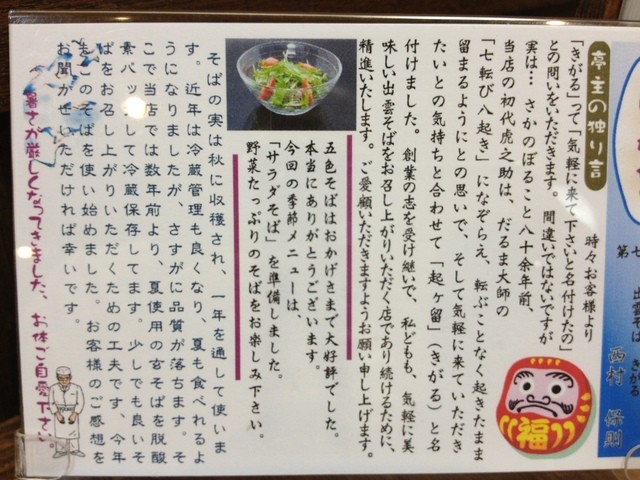 亭主の独り言
時々お客様より
「きがる」って「気軽に来て下さいと名付けたの」
との問いをいただきます。間違いではないですが
実は… さかのぼること八十余年前
当店の初代虎之助は、だるま大師の
「七転び八起き」になぞらえ、転ぶことなく起きたまま
留まるようにとの思いで、そして気軽に来ていただき
たいとの気持ちと合わせて「起ヶ留」（きがる）と名
付けました。創業の志を受け継いで、私どもも、気軽に美
味しい出雲そばをお召し上がりいただく店であり続けるために、
精進いたします。ご愛顧いただきますようお願い申し上げます。
福
五色そばはおかげさまで大好評でした。
本当にありがとうございます。
今回の季節メニューは、
「サラダそば」を準備しました。
野菜たっぷりのそばをお楽しみ下さい。
そばの実は秋に収穫され、一年を通して使いま
す。近年は冷蔵管理も良くなり、夏も食べれるよ
うになりましたが、さすがに品質が落ちます。そ
こで当店では数年前より、夏使用の玄そばを脱酸
素パックして冷蔵保存してます。少しでも良いそ
ばをお召し上がりいただくための工夫です。今年
もこのそばを使い始めました。お客様のご感想を
お聞かせいただければ幸いです。
暑さが厳しくなってきました、お体ご自愛下さい。
第七
出雲そば きがる
西村 保則